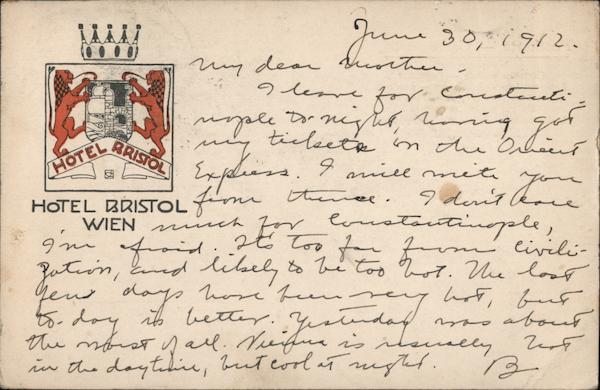 June 30, 1912.
My dear Mother.
I leave for Constanti-
nople to-night, having got
my tickets on the Orient
Express. I will write you
from thence. I don't care
much for Constantinople,
I'm afraid. It's too far from civili-
zation, and likely to be too hot. The last
few days have been very hot, but
to-day is better. Yesterday was about
the worst of all. Vienna is usually hot
in the daytime, but cool at night. B
HOTEL BRISTOL
HOTEL BRISTOL
WIEN